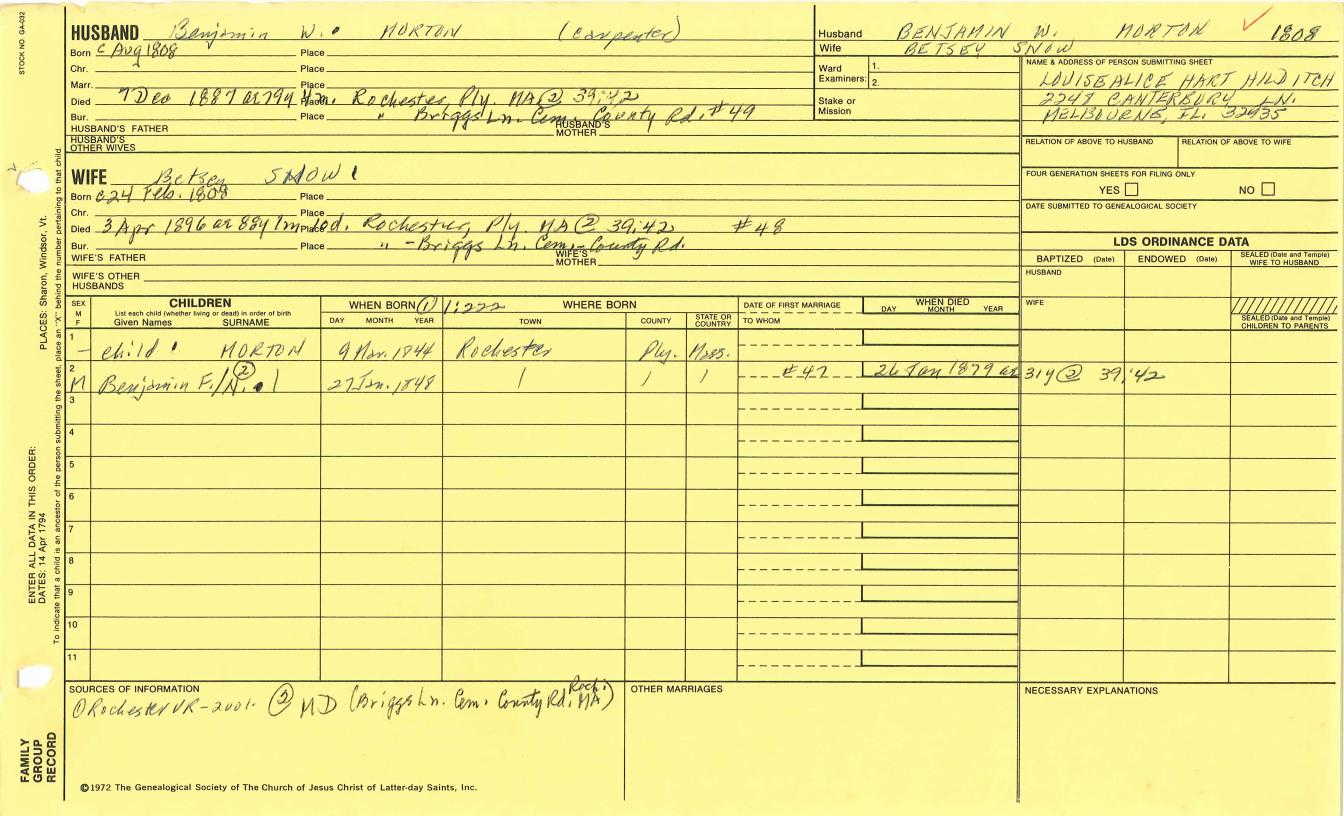 STOCK NO GA-032
HUSBAND Benjamin W. MORTON (carpenter)
Born c Aug 1808 Place
Chr. Place
Marr. Place
Died 7 Dec 1887 at 79y 4m. Place Rochester, Ply. MA ② 39:42
Bur. Place " Briggs Ln. Cem. County Rd. #49
HUSBAND'S FATHER HUSBAND'S MOTHER
HUSBAND'S OTHER WIVES
WIFE Betsey SNOW
Born c 24 Feb. 1808 Place
Chr. Place
Died 3 Apr 1896 at 88y 1m Place Rochester, Ply. MA ② 39:42 #48
Bur. Place " - Briggs Ln. Cem. - County Rd.
WIFE'S FATHER WIFE'S MOTHER
WIFE'S OTHER HUSBANDS
Husband BENJAMIN W. MORTON 1808
Wife BETSEY SNOW
Ward Examiners: 1. 2.
Stake or Mission
NAME & ADDRESS OF PERSON SUBMITTING SHEET
LOUISE ALICE HART HILDITCH
2248 CANTERBURY LN.
MELBOURNE, FL. 32935
RELATION OF ABOVE TO HUSBAND RELATION OF ABOVE TO WIFE
FOUR GENERATION SHEETS FOR FILING ONLY
YES NO
DATE SUBMITTED TO GENEALOGICAL SOCIETY
LDS ORDINANCE DATA
BAPTIZED (Date) ENDOWED (Date) SEALED (Date and Temple) WIFE TO HUSBAND
HUSBAND
WIFE
SEALED (Date and Temple) CHILDREN TO PARENTS
SEX M F CHILDREN WHEN BORN ① 1:222 WHERE BORN DATE OF FIRST MARRIAGE WHEN DIED
List each child (whether living or dead) in order of birth
Given Names SURNAME DAY MONTH YEAR TOWN COUNTY STATE OR COUNTRY TO WHOM DAY MONTH YEAR
1 - child MORTON 9 Mar. 1844 Rochester Ply. Mass.
2 M Benjamin F./N. ② 27 Jan. 1848 #47 26 Jan 1879 at 31y ② 39:42
3
4
5
6
7
8
9
10
11
SOURCES OF INFORMATION
① Rochester VR-2001. ② MD (Briggs Ln. Cem. County Rd. Roch. MA)
OTHER MARRIAGES
NECESSARY EXPLANATIONS
©1972 The Genealogical Society of The Church of Jesus Christ of Latter-day Saints, Inc.
FAMILY GROUP RECORD
ENTER ALL DATA IN THIS ORDER:
DATES: 14 Apr 1794
PLACES: Sharon, Windsor, Vt.
To indicate that a child is an ancestor of the person submitting the sheet, place an "X" behind the number pertaining to that child.